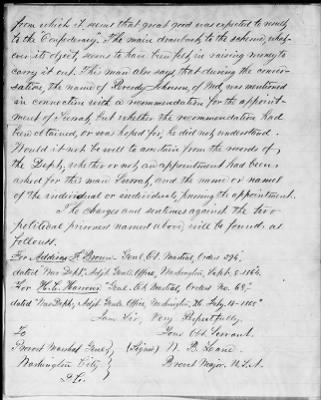 from which it seems that great good was expected to result
to the Confederacy. The main drawback to the scheme, what-
ever its object, seems to have been felt, in raising money to
carry it out. This man also says that during the conver-
sation, the name of Reverdy Johnson, of Md, was mentioned
in connection with a recommendation for the appoint-
ment of Surrat, but whether the recommendation had
been obtained, or was hoped for, he did not understand.
Would it not be well to ascertain from the records of
the Dept, whether or not, an appointment had been
asked for this man Surrat, and the name or names
of the individual or individuals, pressing the appointment.
The charges and sentences against the two
political prisoners named above, will be found, as
follows.
For Addison F. Brown Genl. Ct. Martial, Orders
dated War Dept. Adjt. Genls Office, Washington, Sept. 8- 1864.
For Genl. Ct. Martial, Orders No. 69,
dated War Dept, Adjt. Genls Office, Washington,
I am Sir, Very Respectfully,
To Your Obt. Servant
Brevet Genl (Signed) W. B. Lane
Washington City Brevet Major. U.S.A.